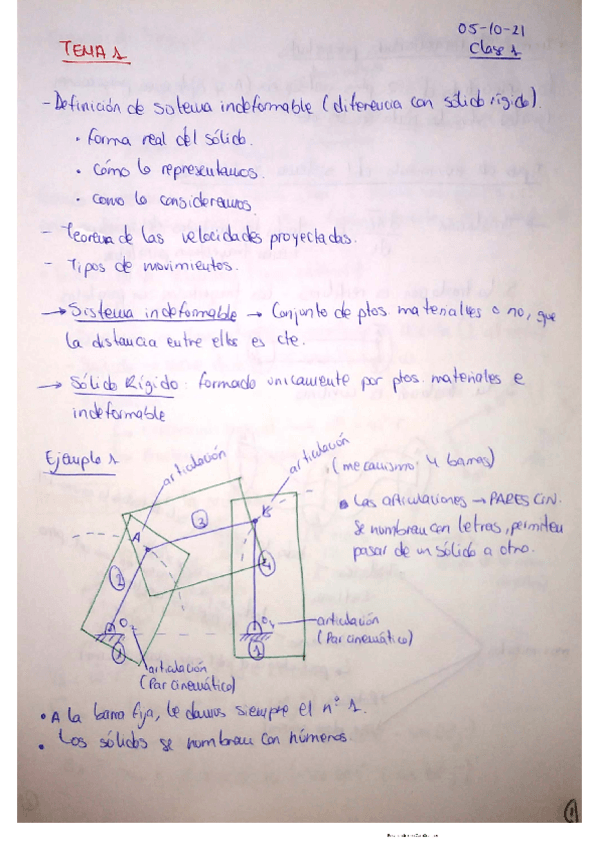 05-10-21
TEMA 1
Clase 1
- Definición de sistema indeformable (diferencia con sólido rígido).
• forma real del sólido.
• cómo lo representamos.
• como lo consideramos
- Teorema de las velocidades proyectadas.
- Tipos de movimientos.
→ Sistema indeformable → Conjunto de ptos materiales o no, que
la distancia entre ellos es cte.
→ Sólido Rígido: formado unicamente por ptos. materiales e
indeformable
Ejemplo 1
articulación
articulación
(mecanismo: 4 barras)
• Las articulaciones → PARES CIN.
Se nombran con letras, permiten
pasar de un sólido a otro.
A
B
3
2
4
O₂
O₄
1
1
articulación
(Par cinemático)
articulación
(Par cinemático)
• A la barra fija, le damos siempre el nº 1.
• Los sólidos se nombran con números.
1